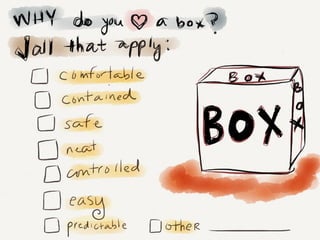 WHY do you ♡ a box?
√all that apply:
comfortable
contained
safe
neat
controlled
easy
predictable
other
BOX
BOX
BOX